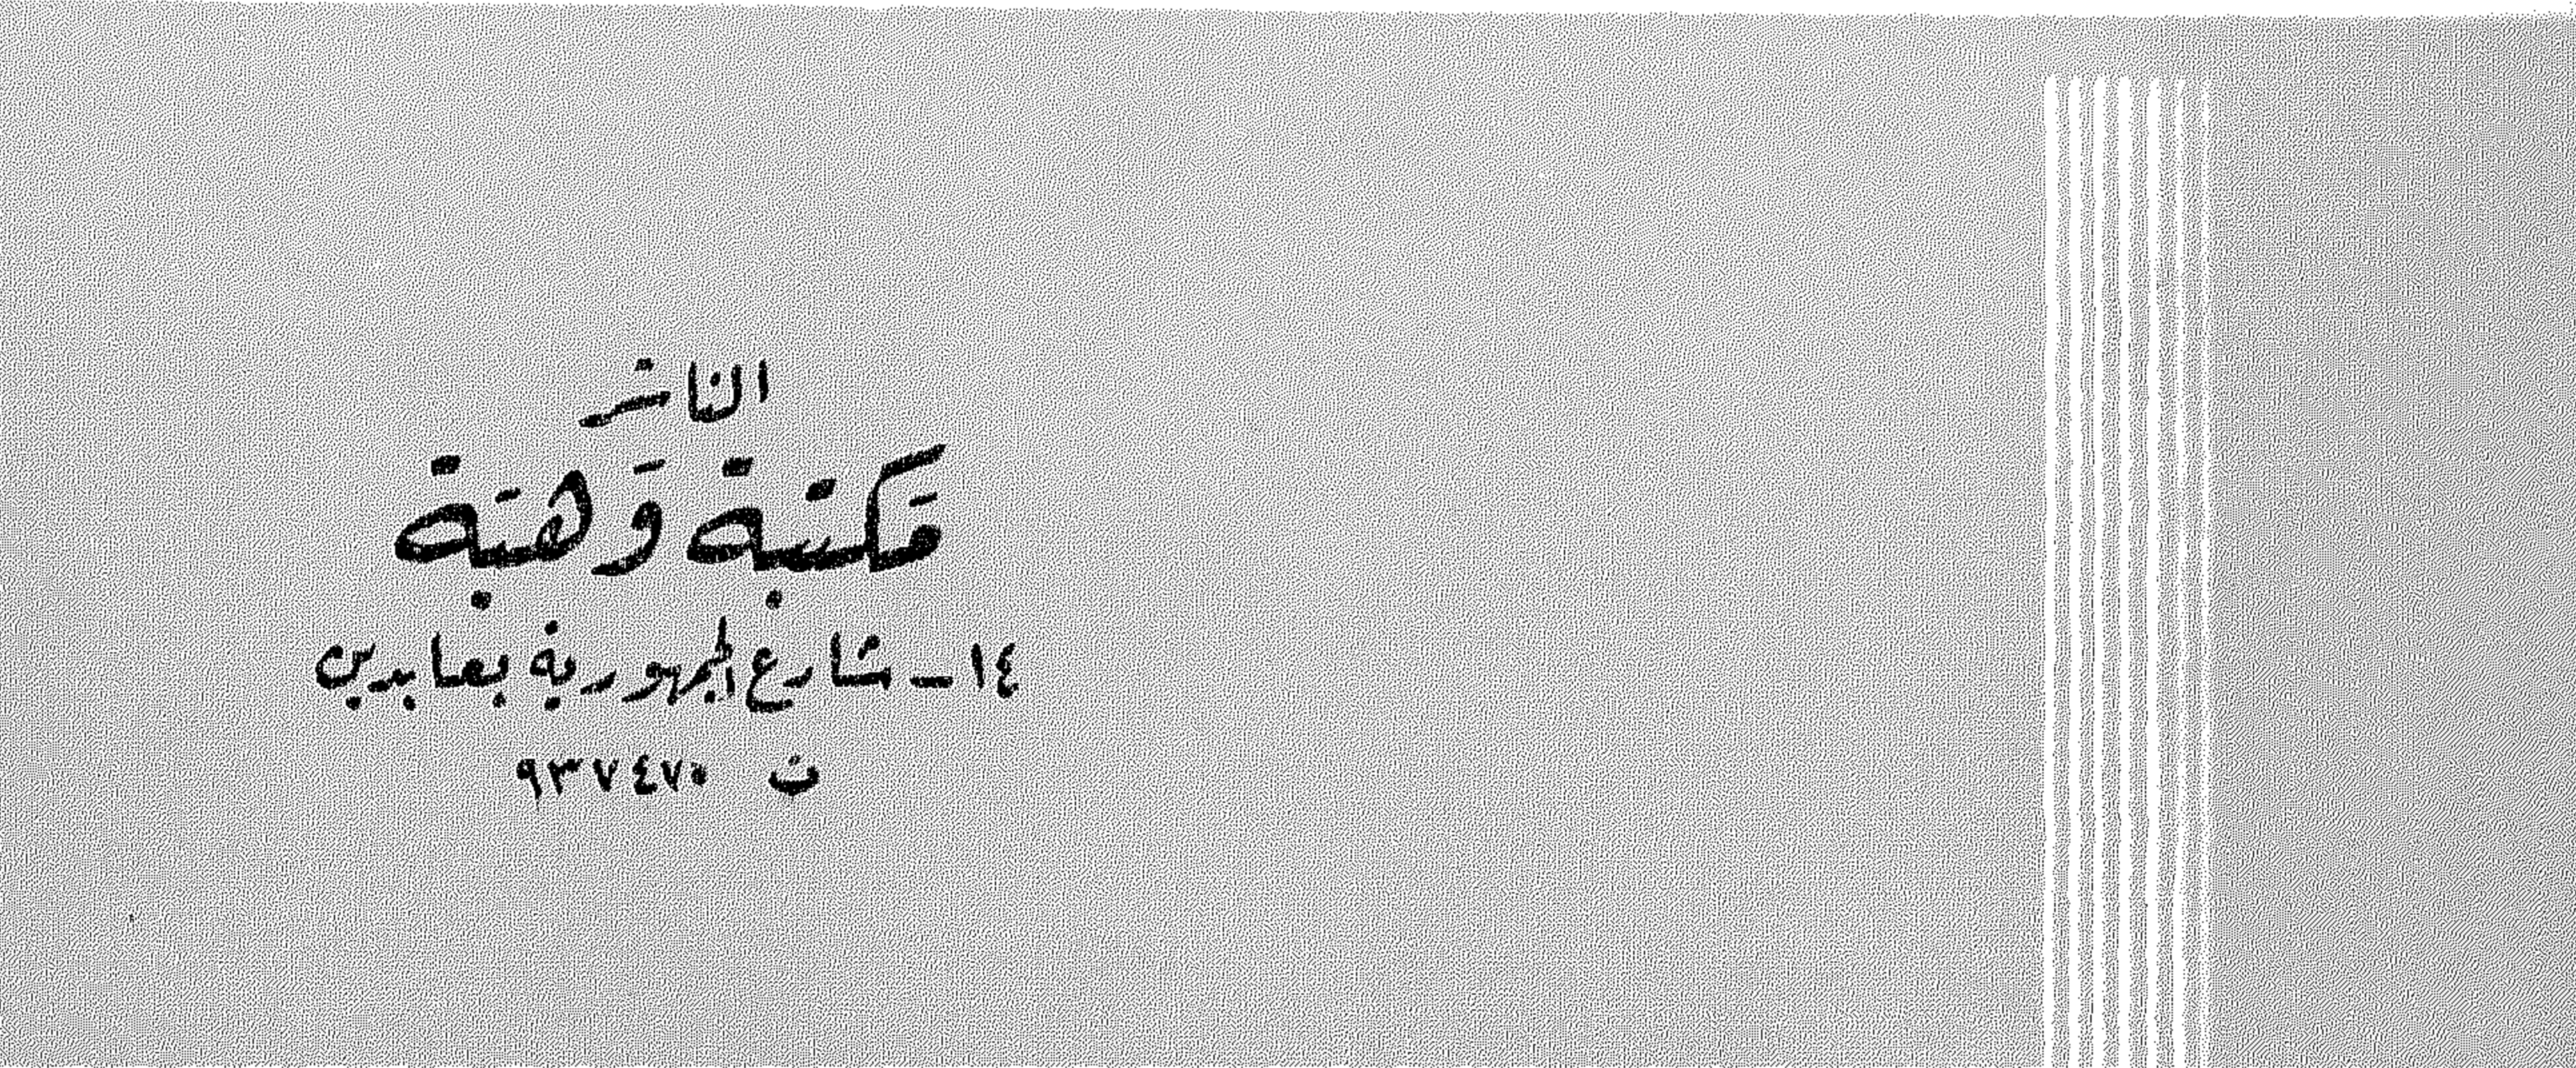 الناشر
مَكتبة وَهبَة
١٤ - شارع الجمهورية بعابدين
ت ٩٣٧٤٧٠